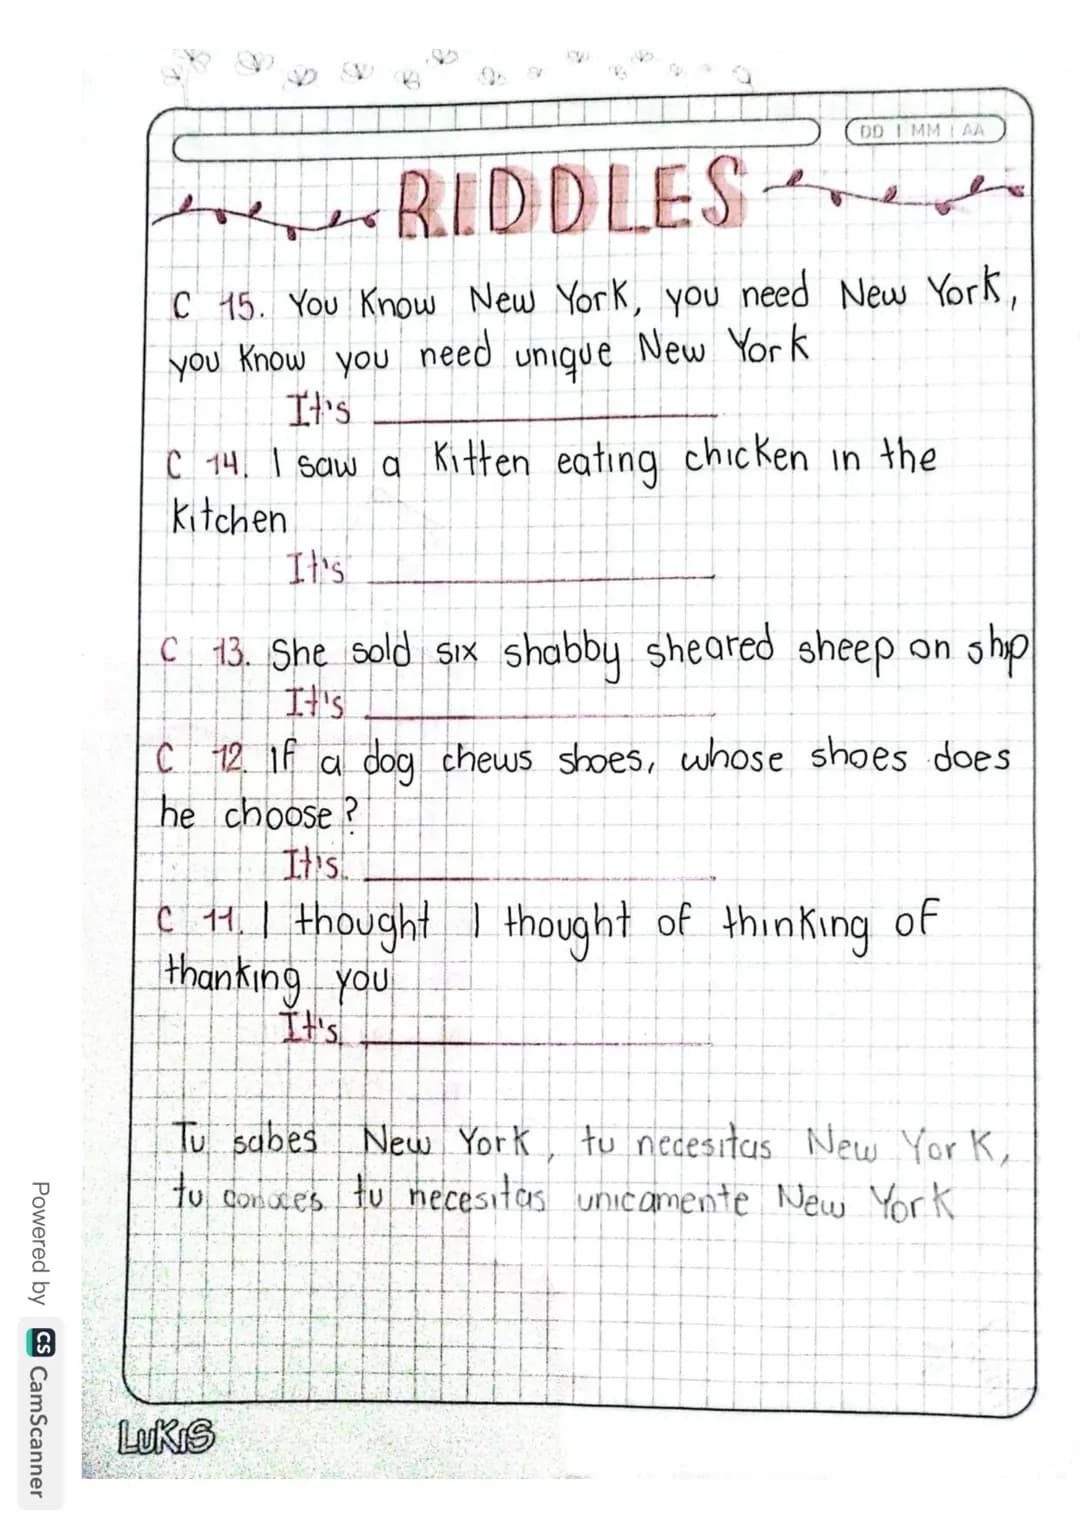 DD | MM | AA
RIDDLES
C 15. You Know New York, you need New York,
you know you need unique New York
It's
C 14. I saw a Kitten eating chicken in the
kitchen
It's
C 13. She sold six shabby sheared sheep on ship
It's
C 12. if a dog chews shoes, whose shoes does
he choose?
It's.
C 11. I thought I thought of thinking of
thanking you
It's
Tu sabes New York, tu necesitas New York,
tu conoces tu necesitas unicamente New York
LUKIS
Powered by CS CamScanner